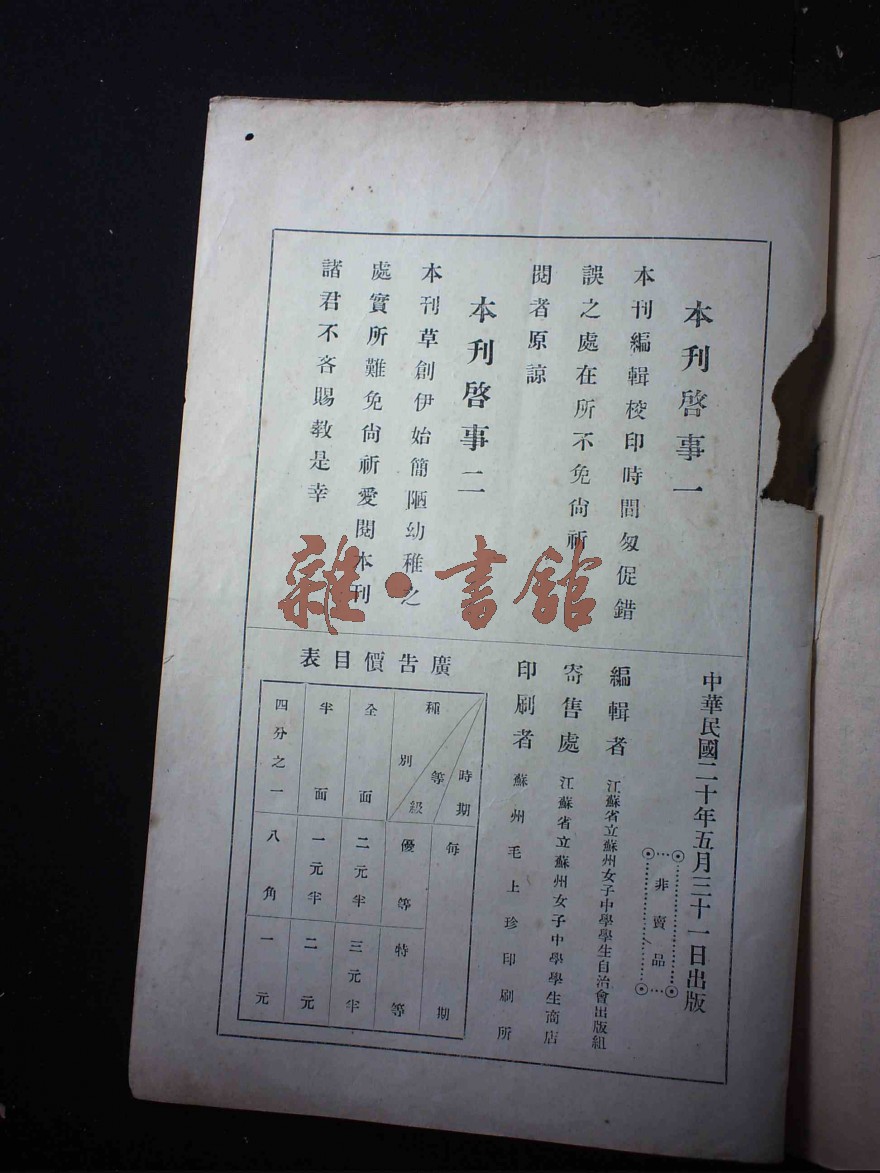 本刊啓事一
本刊編輯校印時間匆促錯
誤之處在所不免尙祈
閱者原諒
本刊啓事二
本刊草創伊始簡陋幼稚之
處實所難免尙祈愛閱本刊
諸君不吝賜敎是幸
雜·書館
中華民國二十年五月三十一日出版
非賣品
編輯者 江蘇省立蘇州女子中學學生自治會出版組
寄售處 江蘇省立蘇州女子中學學生商店
印刷者 蘇州毛上珍印刷所
廣告價目表
時期 每期
等級 優等 特等
種別
全面 二元半 三元半
半面 一元半 二元
四分之一 八角 一元